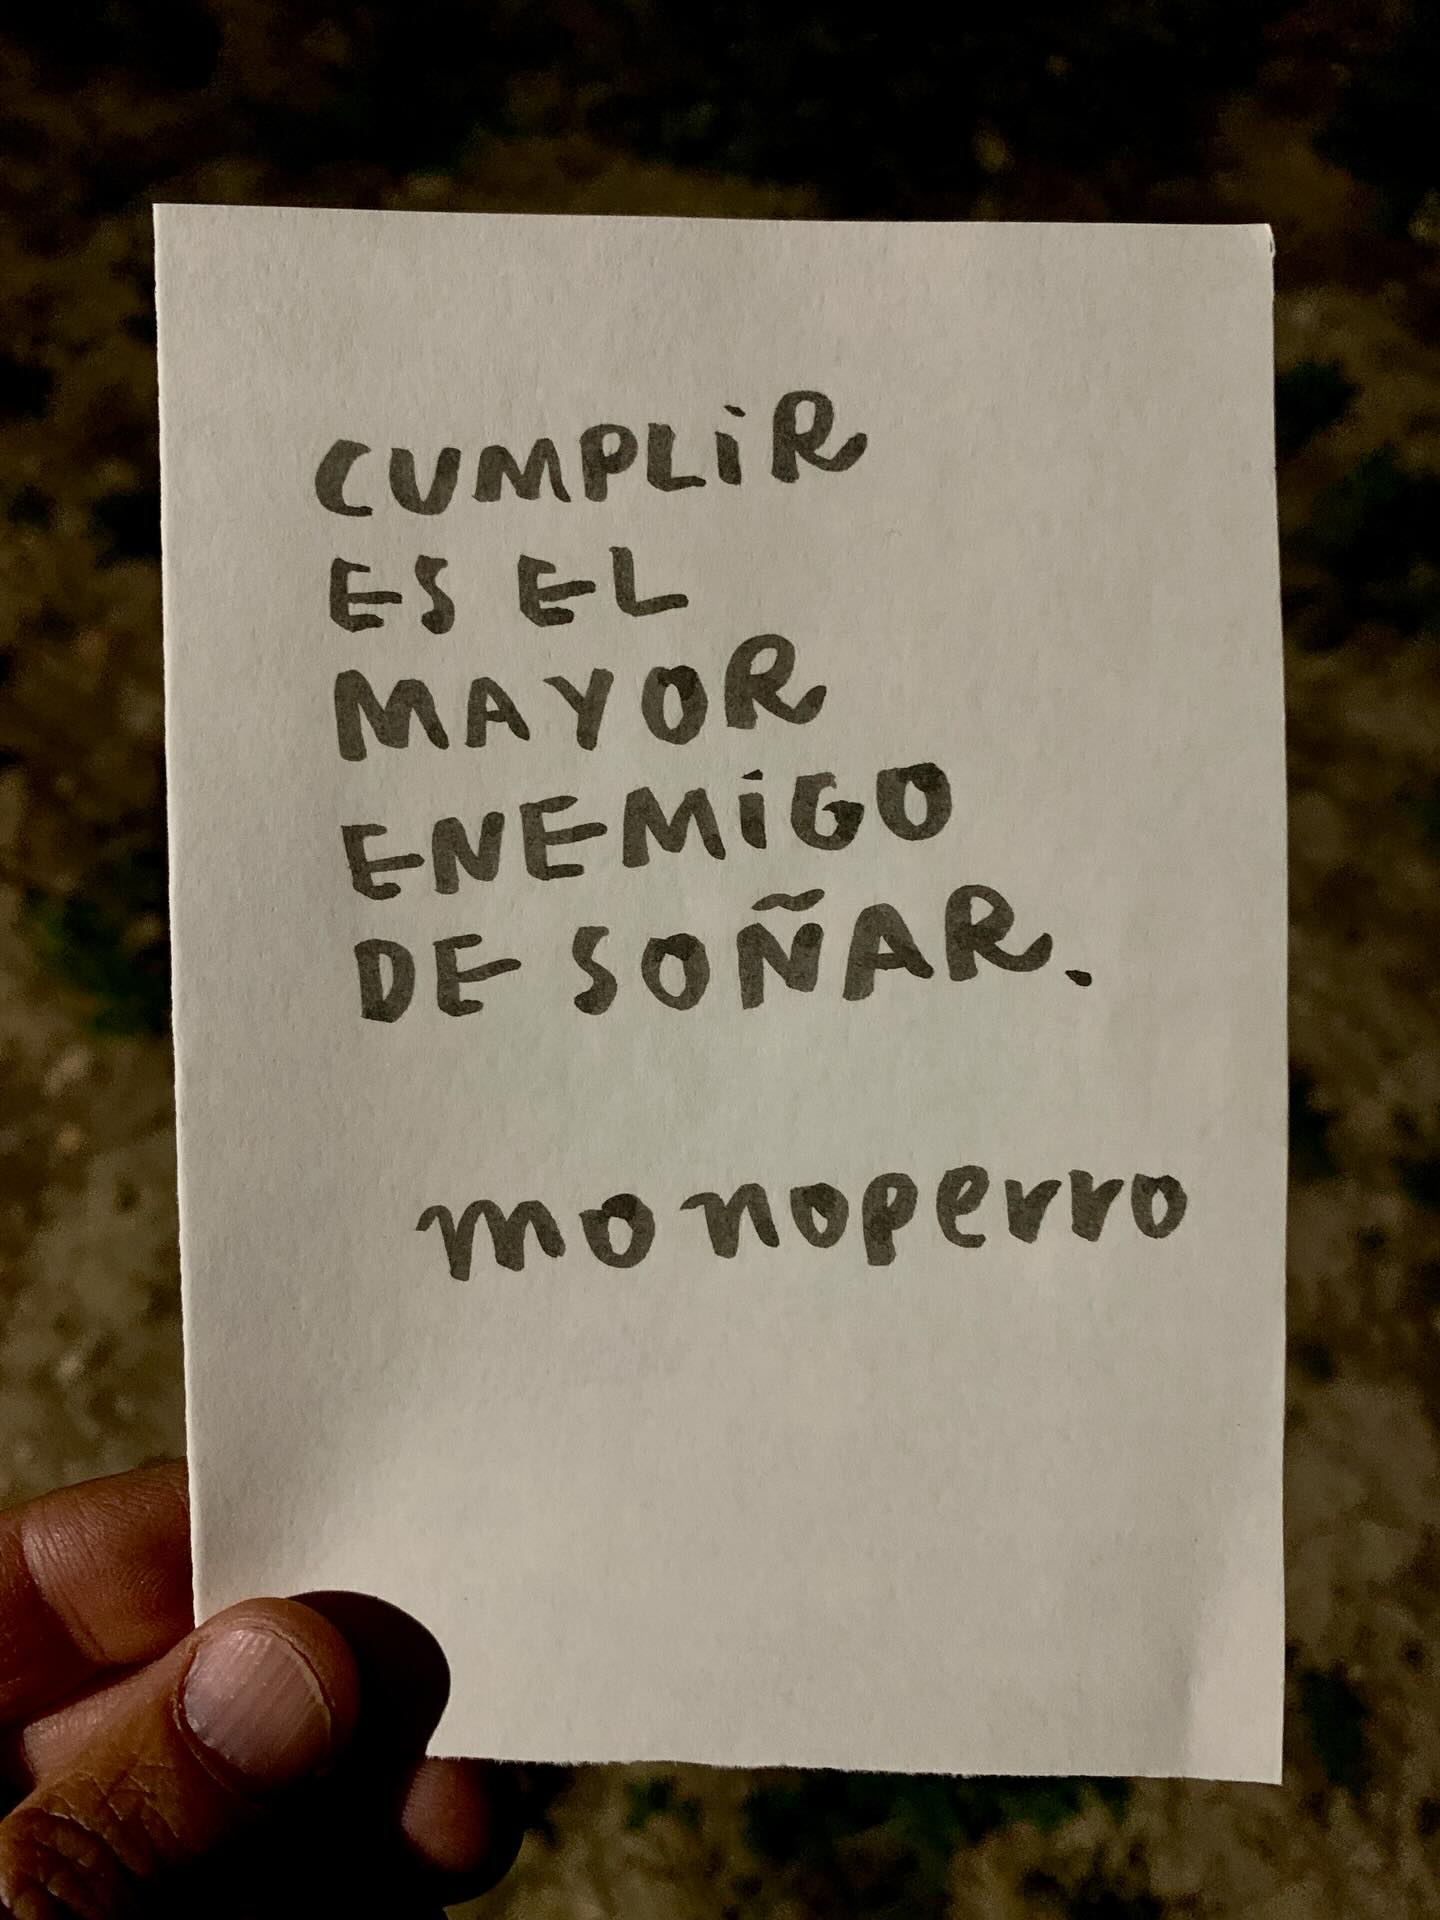 CUMPLiR
ES EL
MAYOR
ENEMiGO
DE SOÑAR.
monoperro